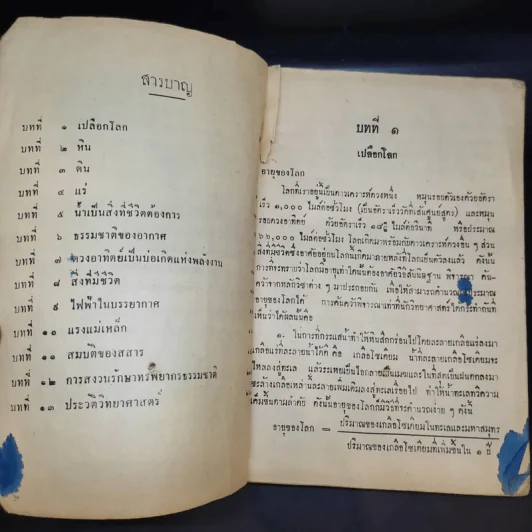 สารบาญ
บทที่ ๑ เปลือกโลก
บทที่ ๒ หิน
บทที่ ๓ ดิน
บทที่ ๔ แร่
บทที่ ๕ น้ำเป็นสิ่งที่ชีวิตต้องการ
บทที่ ๖ ธรรมชาติของอากาศ
บทที่ ๗ ดวงอาทิตย์เป็นบ่อเกิดแห่งพลังงาน
บทที่ ๘ สิ่งที่มีชีวิต
บทที่ ๙ ไฟฟ้าในบรรยากาศ
บทที่ ๑๐ แรงแม่เหล็ก
บทที่ ๑๑ สมบัติของสสาร
บทที่ ๑๒ การสงวนรักษาทรัพยากรธรรมชาติ
บทที่ ๑๓ ประวัติวิทยาศาสตร์
บทที่ ๑
เปลือกโลก
อายุของโลก
โลกที่เราอยู่นี้เป็นดาวเคราะห์ดวงหนึ่ง หมุนรอบตัวเองด้วยอัตรา
เร็ว ๑,๐๐๐ ไมล์ต่อชั่วโมง (เป็นอัตราเร็ววัดที่เส้นศูนย์สูตร) และหมุน
รอบดวงอาทิตย์ ด้วยอัตราเร็ว ไมล์ต่อวินาที หรือประมาณ
๖๖,๐๐๐ ไมล์ต่อชั่วโมง โลกเกิดมาพร้อมกับดาวเคราะห์ดวงอื่น ๆ ส่วน
สิ่งที่มีชีวิตซึ่งอาศัยอยู่บนโลกนั้นเกิดมาภายหลังที่โลกเย็นตัวลงแล้ว ดังนั้น
การที่จะทราบว่าโลกมีอายุเท่าใดนั้นต้องอาศัยวิธีสันนิษฐาน พิจารณา ค้น
คว้าจากหลักวิชาต่าง ๆ มาประกอบกัน เพื่อให้สามารถคำนวณประมาณ
อายุของโลกได้ การค้นคว้าพิจารณาเท่าที่นักวิทยาศาสตร์ได้กระทำกันที่
เห็นว่าได้ผลนั้นคือ
๑. ในการที่กระแสน้ำทำให้หินสึกกร่อนไปโดยละลายเกลือแร่ลงมา
เกลือแร่ที่ละลายน้ำได้ดี คือ เกลือโซเดียม น้ำที่ละลายเกลือโซเดียมจะ
ไหลลงสู่ทะเล แล้วระเหยเป็นไอกลายเป็นเมฆและในที่สุดเป็นฝนตกลงมา
ชะล้างเกลือเหล่านี้และละลายเพิ่มเติมลงสู่ทะเลเรื่อยไป ทำให้น้ำทะเลทวีความ
เค็มขึ้นตามลำดับ ดังนั้นอายุของโลกก็มีวิธีที่จะคำนวณง่าย ๆ ดังนี้
อายุของโลก = ปริมาณของเกลือโซเดียมในทะเลและมหาสมุทร
ปริมาณของเกลือโซเดียมที่เพิ่มขึ้นใน ๑ ปี